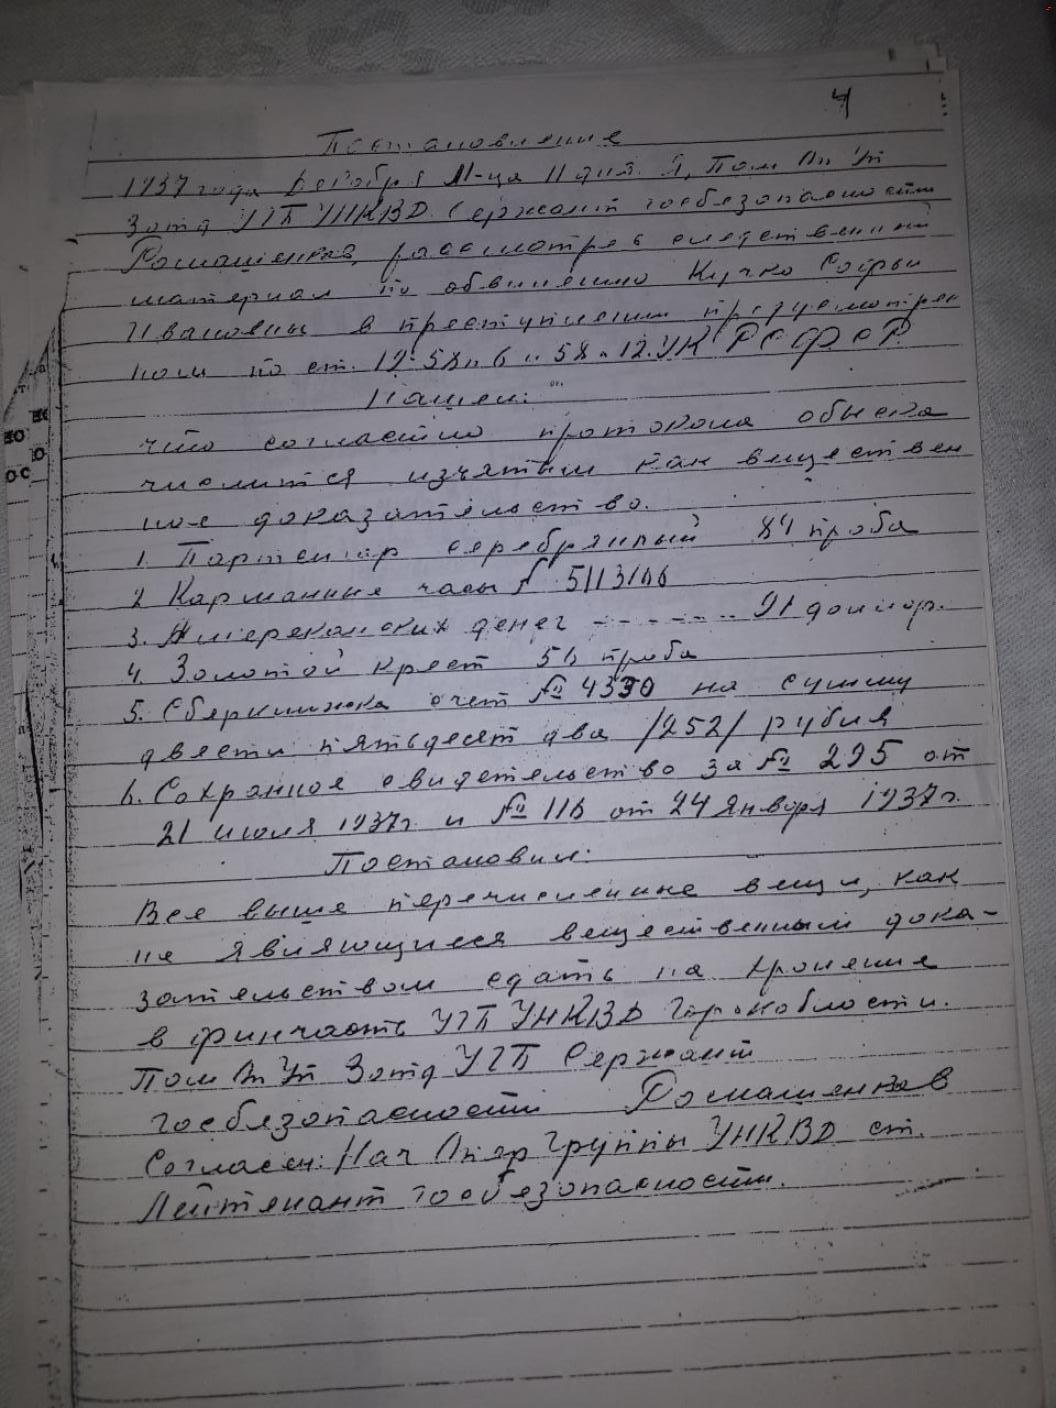 4
Постановление
1937 года Декабря М-ца 11 дня. Я, Пом Оп Уп
3 отд УГБ УНКВД. Сержант госбезопасности
Ромашенков, рассмотрев следственный
материал по обвинению Кучко Софьи
Ивановны в преступлении предусмотрен
ном по ст. 19-58 п. 6 и 58 п. 12. УК РСФСР
Нашел:
что согласно протокола обыска
числится изъятым как веществен
ное доказательство.
1. Портсигар серебрянный 84 проба
2 Карманные часы № 5113166
3. Американских денег - - - - - - 91 доллар.
4. Золотой крест 56 проба
5. Сберкнижка счет № 4390 на сумму
двести пятьдесят два /252/ рубля
6. Сохранное свидетельство за № 295 от
21 июля 1937г. и № 116 от 24 Января 1937г.
Постановил:
Все выше перечисленные вещи, как
не являющиеся вещественным дока-
зательством сдать на хронение
в финчасть УГБ УНКВД Горьк области.
Пом Оп Уп 3 отд УГБ Сержант
госбезопасности Ромашенков
Согласен: Нач Опер Группы УНКВД ст.
Лейтенант госбезопасности.